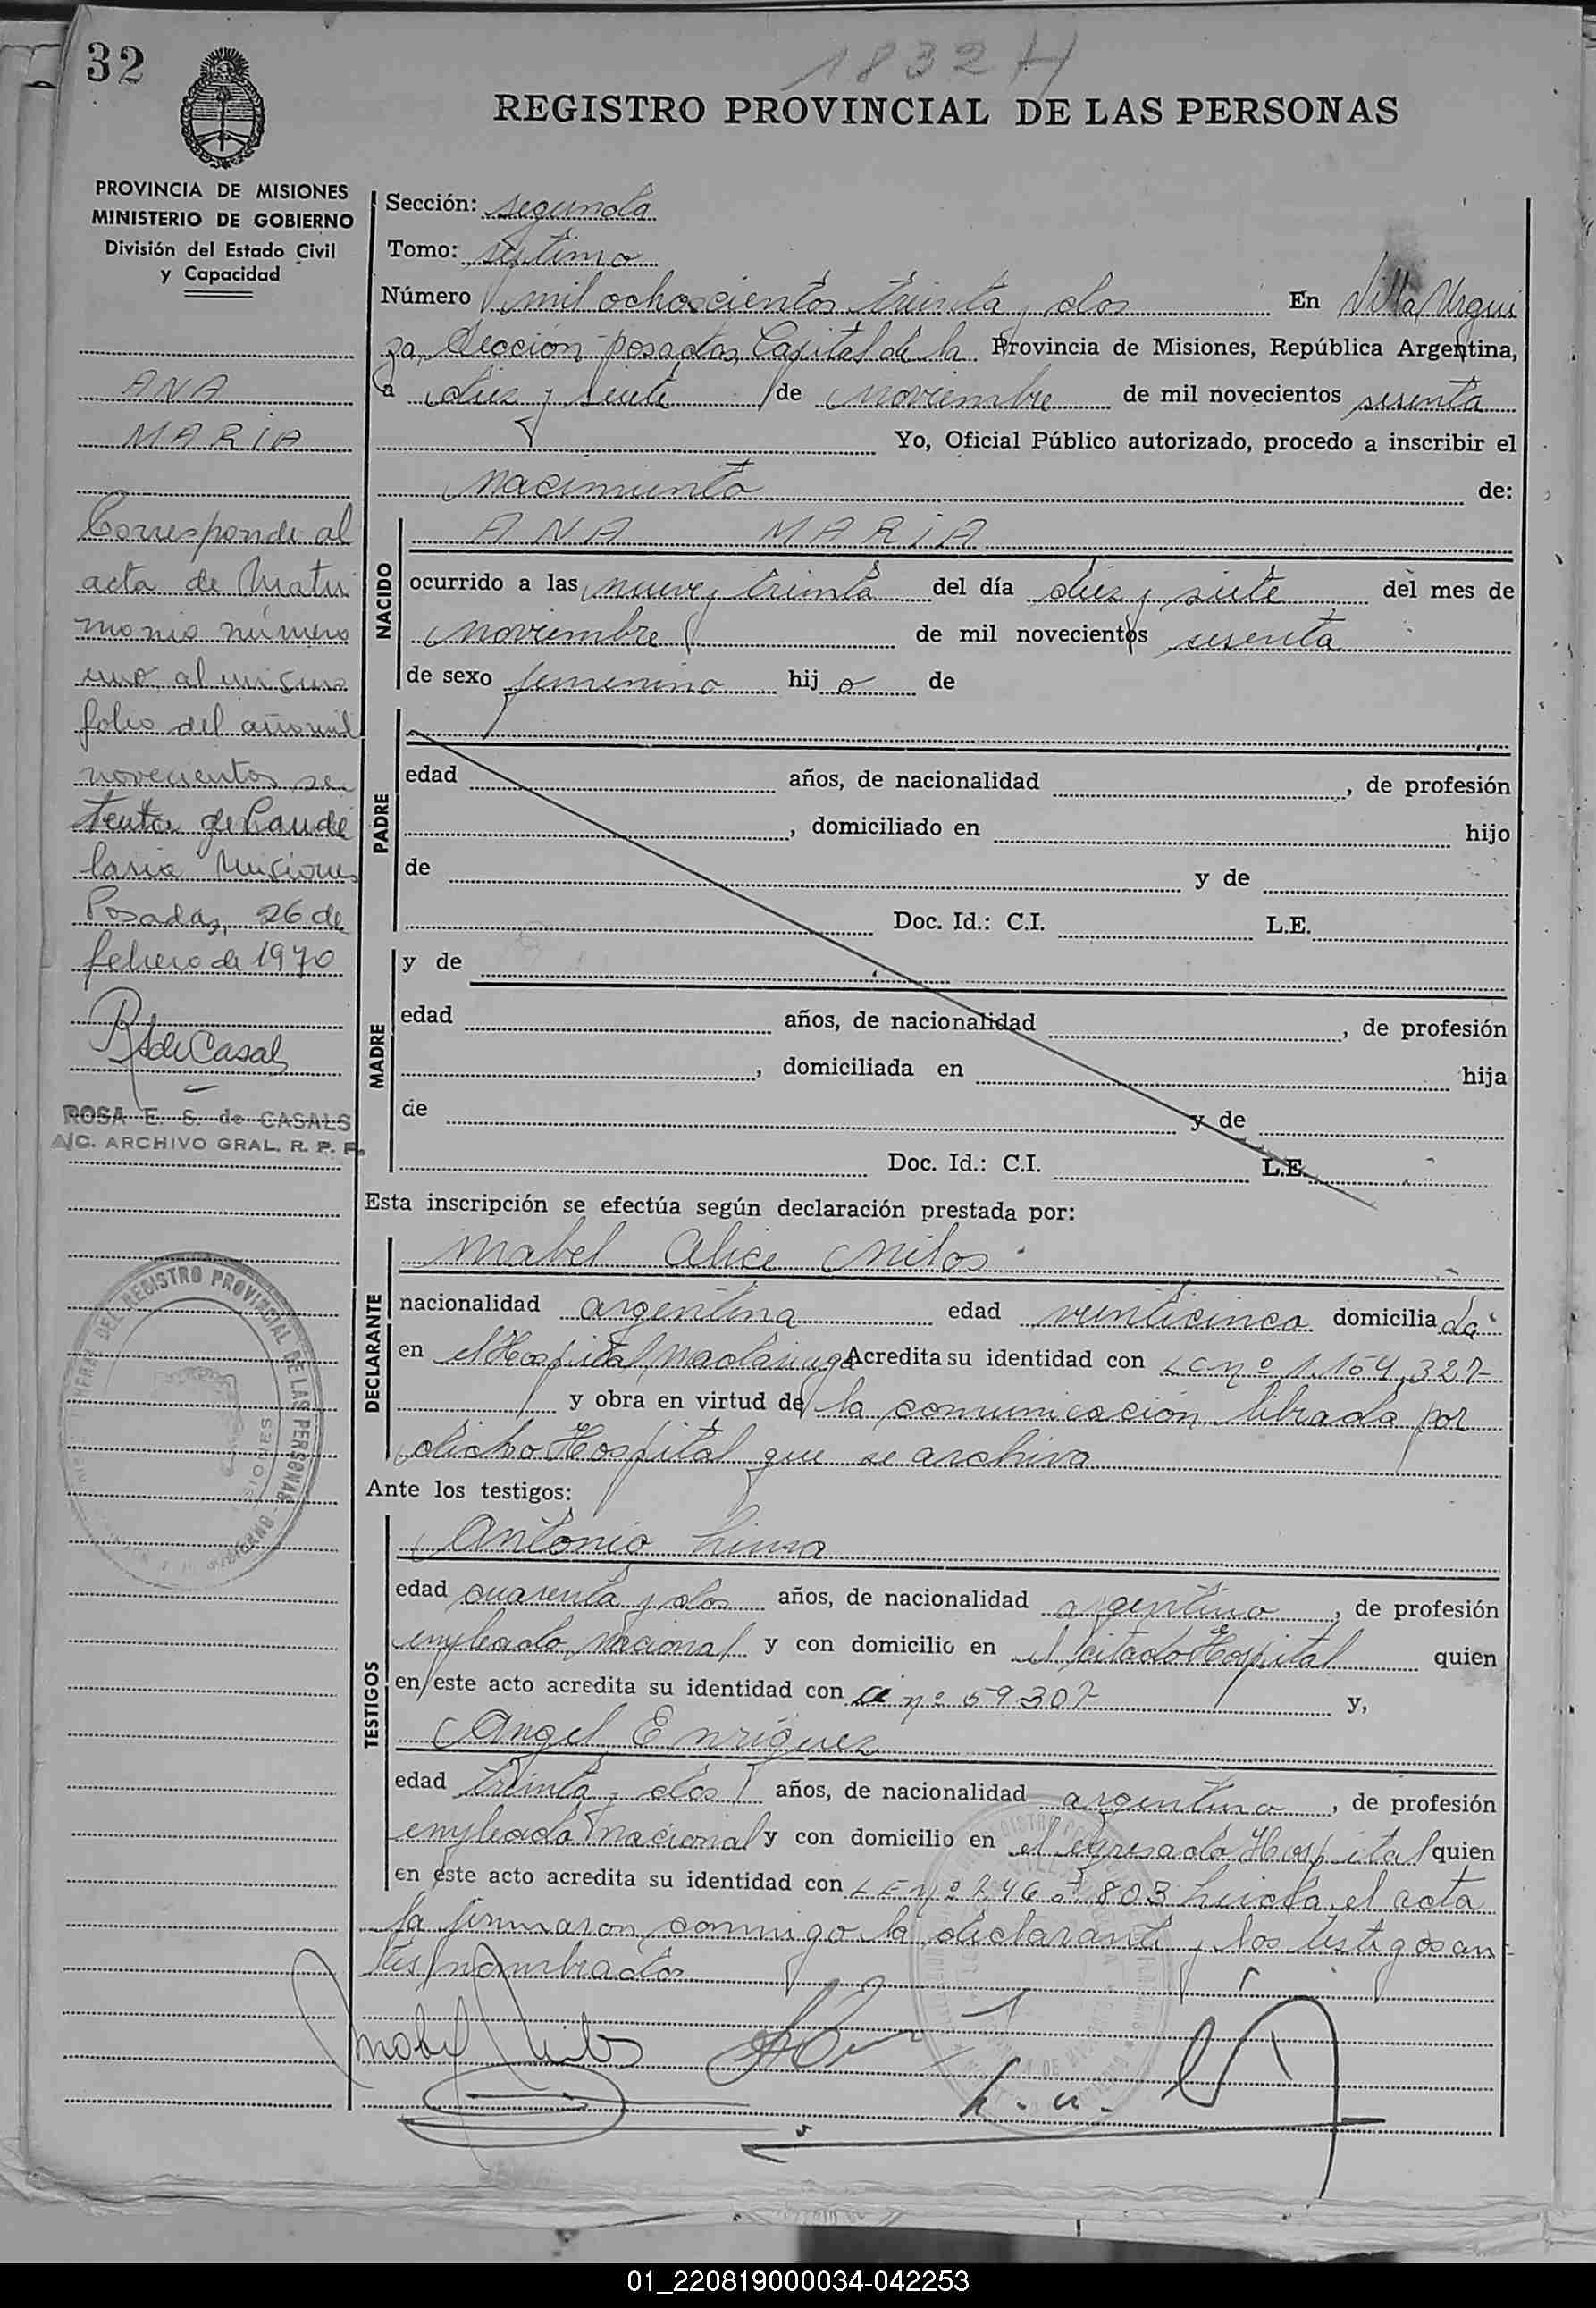 32
1832 H
REGISTRO PROVINCIAL DE LAS PERSONAS
PROVINCIA DE MISIONES
MINISTERIO DE GOBIERNO
División del Estado Civil
y Capacidad
ANA
MARIA
Corresponde al
acta de Matri
monio número
uno, al mismo
folio del año mil
novecientos se
tenta de Cande
laria Misiones
Posadas, 26 de
febrero de 1970
R S de Casals
ROSA E. S. de CASALS
A/C. ARCHIVO GRAL. R. P. P.
DEL REGISTRO PROVINCIAL DE LAS PERSONAS
Sección: segunda
Tomo: septimo
Número mil ochoscientos treinta y dos En Villa Urqui
za, Sección posadas, Capital de la Provincia de Misiones, República Argentina,
a diez y siete de noviembre de mil novecientos sesenta
Yo, Oficial Público autorizado, procedo a inscribir el
nacimiento de:
NACIDO
ANA MARIA
ocurrido a las nueve y treinta del día diez y siete del mes de
noviembre de mil novecientos sesenta
de sexo femenino hij o de
PADRE
edad años, de nacionalidad , de profesión
, domiciliado en hijo
de y de
Doc. Id.: C.I. L.E.
MADRE
y de
edad años, de nacionalidad , de profesión
, domiciliada en hija
de y de
Doc. Id.: C.I. L.E.
Esta inscripción se efectúa según declaración prestada por:
DECLARANTE
Mabel Alice Milos
nacionalidad argentina edad veinticinco domicilia da
en el Hospital Madariaga Acredita su identidad con LC nº 1.154.327
y obra en virtud de la comunicación librada por
dicho Hospital que se archiva
Ante los testigos:
TESTIGOS
Antonio Lima
edad cuarenta y dos años, de nacionalidad argentino, de profesión
empleado nacional y con domicilio en el citado Hospital quien
en este acto acredita su identidad con nº 59307 y,
Angel Enriquez
edad treinta y dos años, de nacionalidad argentino, de profesión
empleado nacional y con domicilio en el expresado Hospital quien
en este acto acredita su identidad con LE nº 803 Leida el acta
la firmaron conmigo la declarante y los testigos an-
tes nombrados
Mabel Milos
01_220819000034-042253